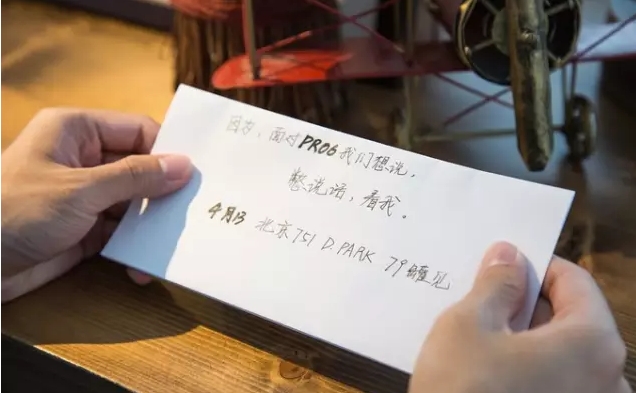 因为、面对PRO6我们想说，
憋说话，看我。
4月13 北京751 D.PARK 79罐见